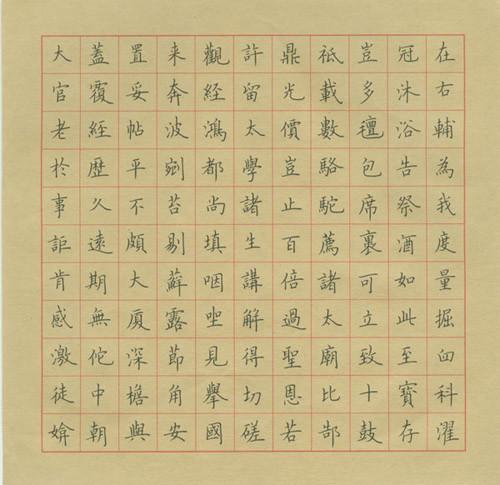 在右輔為我度量掘臼科濯
冠沐浴告祭酒如此至寶存
豈多氈包席裹可立致十鼓
祗載數駱駝薦諸太廟比郜
鼎光價豈止百倍過聖恩若
許留太學諸生講解得切磋
觀経鴻都尚填咽坐見舉國
来奔波剜苔剔蘚露節角安
置妥帖平不頗大廈深檐與
蓋覆経歷久遠期無佗中朝
大官老於事詎肯感激徒媕